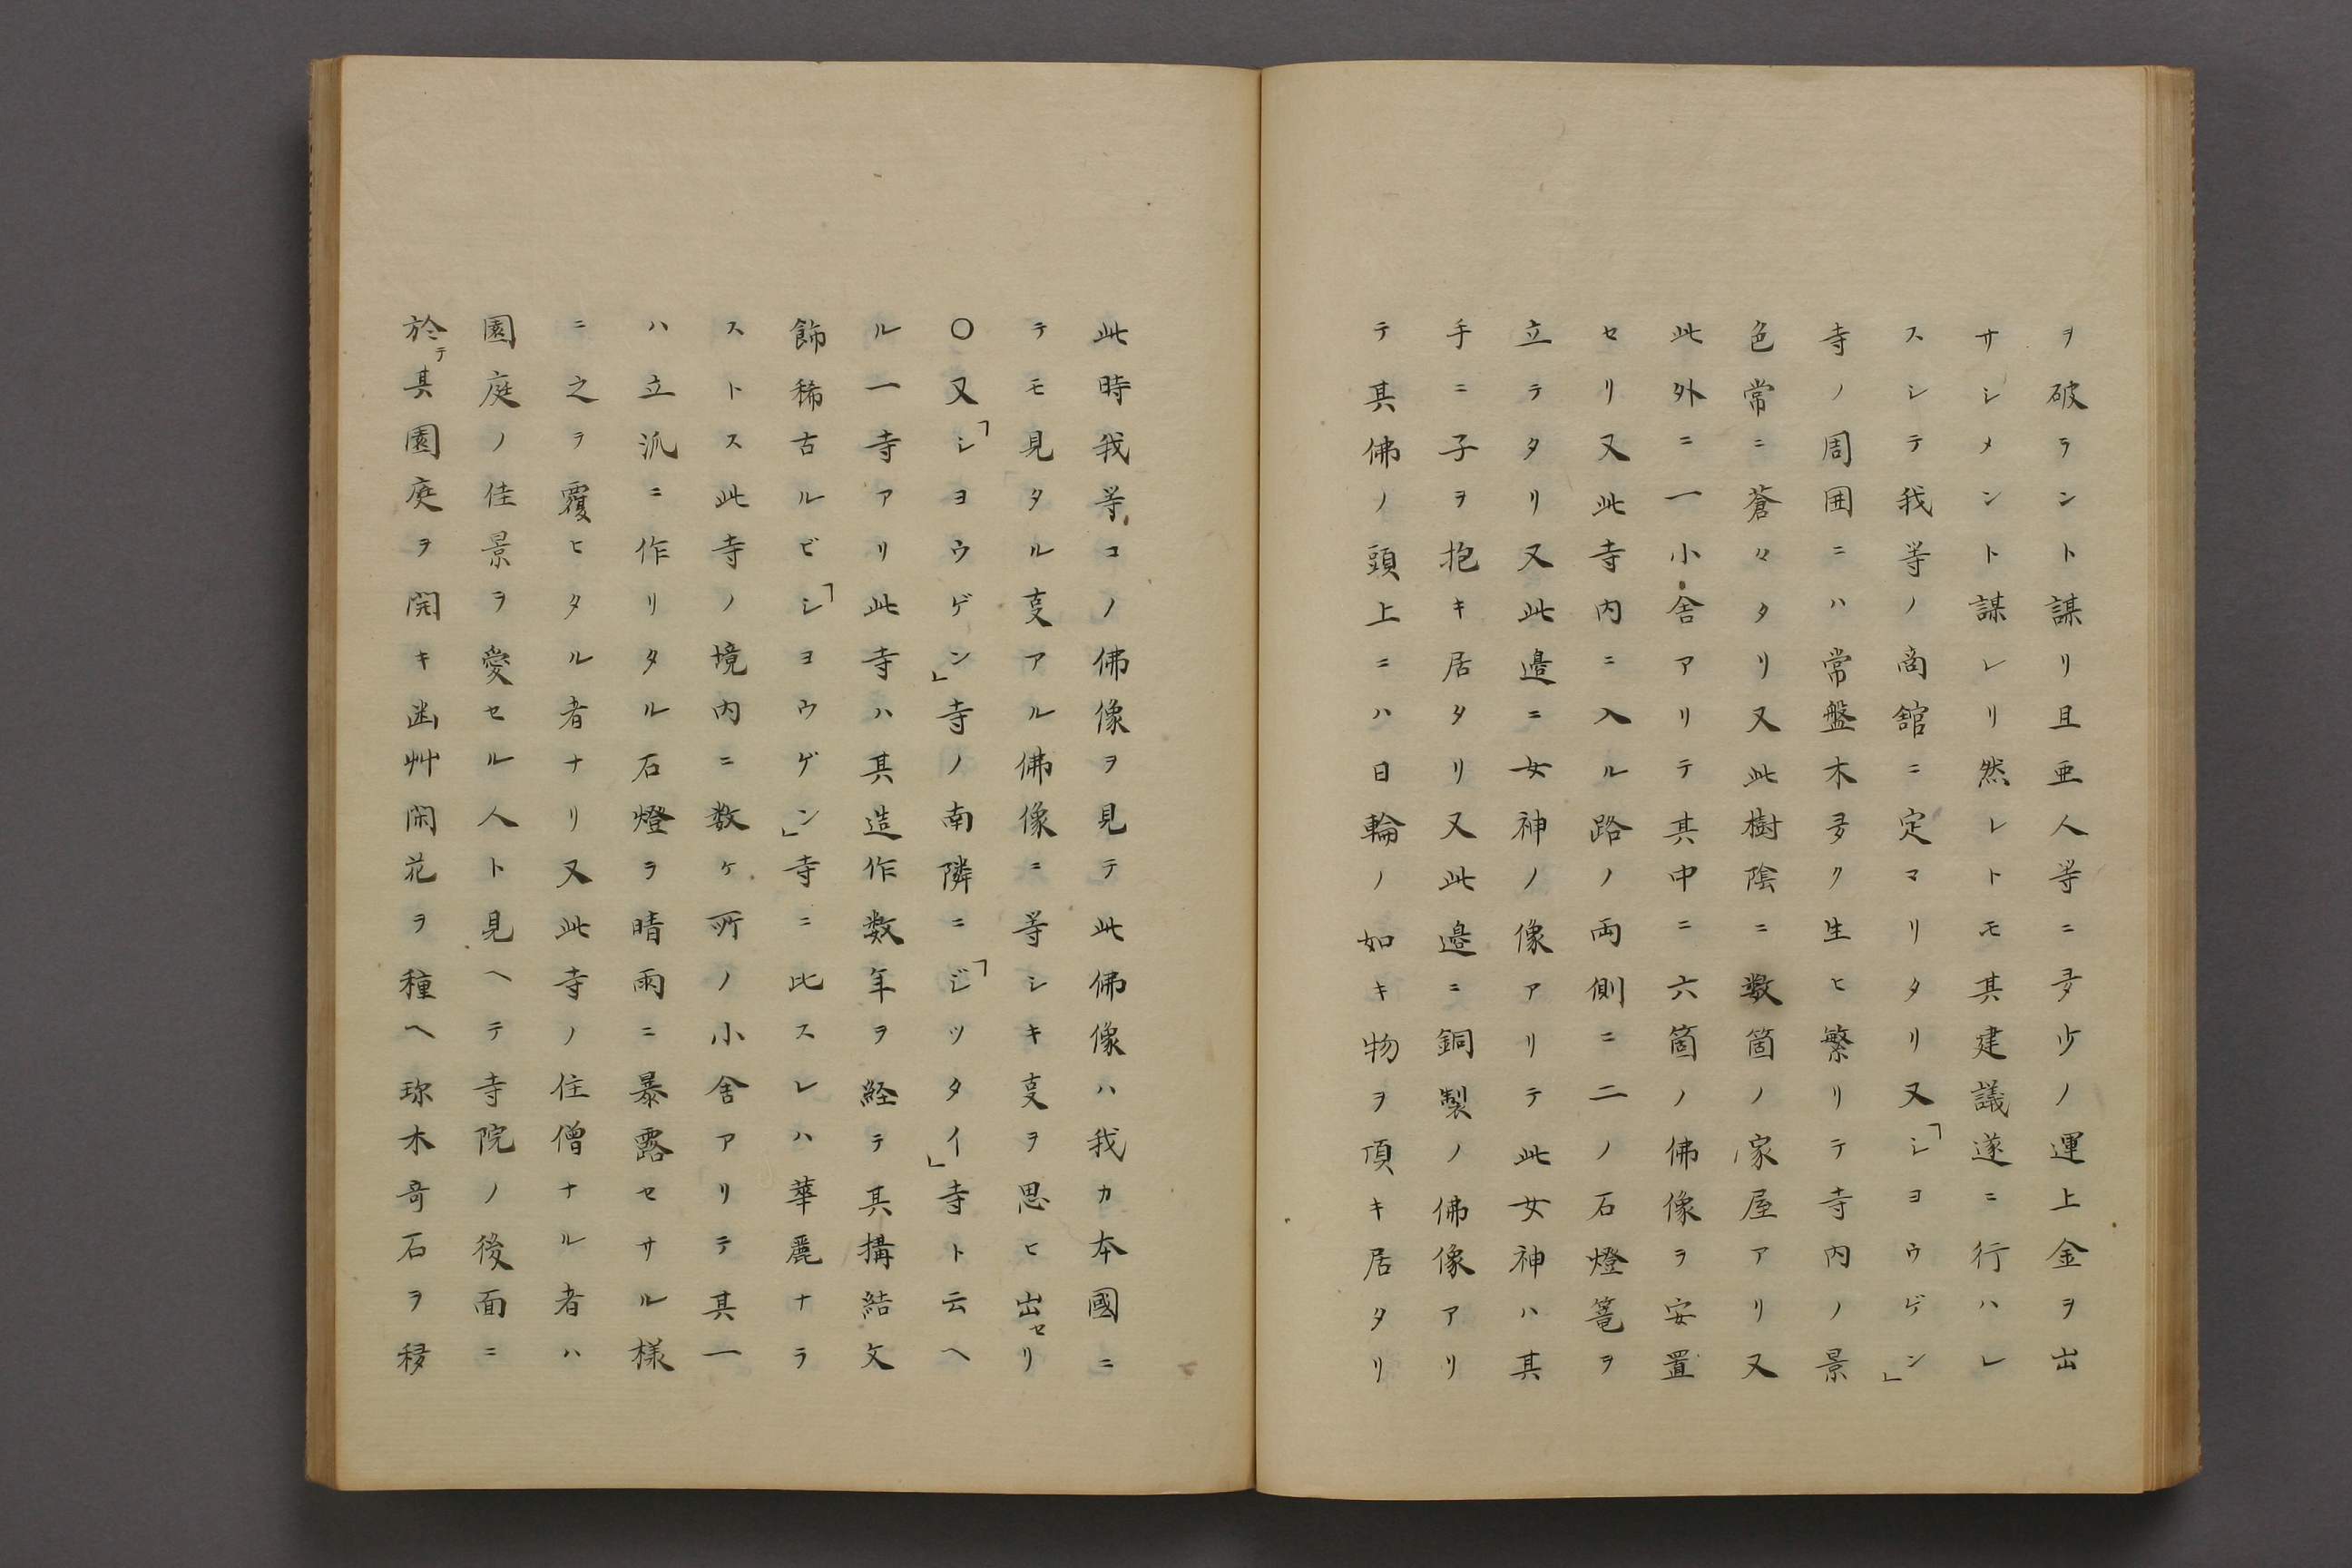 ヲ破ラント謀リ且亜人等ニ多少ノ運上金ヲ出
サシメント謀レリ然レトモ其建議遂ニ行ハレ
スシテ我等ノ商舘ニ定マリタリ又「ショウゲン」
寺ノ周囲ニハ常盤木多ク生ヒ繁リテ寺内ノ景
色常ニ蒼々タリ又此樹陰ニ数箇ノ家屋アリ又
此外ニ一小舎アリテ其中ニ六箇ノ佛像ヲ安置
セリ又此寺内ニ入ル路ノ両側ニ二ノ石燈篭ヲ
立テタリ又此邉ニ女神ノ像アリテ此女神ハ其
手ニ子ヲ抱キ居タリ又此邉ニ銅製ノ佛像アリ
テ其佛ノ頭上ニハ日輪ノ如キ物ヲ頂キ居タリ
此時我等コノ佛像ヲ見テ此佛像ハ我カ本國ニ
テモ見タル㕝アル佛像ニ等シキ㕝ヲ思ヒ出セリ
〇又「ショウゲン」寺ノ南隣ニ「ジツタイ」寺ト云ヘ
ル一寺アリ此寺ハ其造作数年ヲ経テ其搆結文
飾稀古ルビ「ショウゲン」寺ニ比スレハ華麗ナラ
ストス此寺ノ境内ニ数ケ所ノ小舎アリテ其一
ハ立派ニ作リタル石燈ヲ晴雨ニ暴露セサル様
ニ之ヲ覆ヒタル者ナリ又此寺ノ住僧ナル者ハ
園庭ノ佳景ヲ愛セル人ト見ヘテ寺院ノ後面ニ
於テ其園庭ヲ開キ幽艸閑花ヲ種ヘ珎木竒石ヲ移